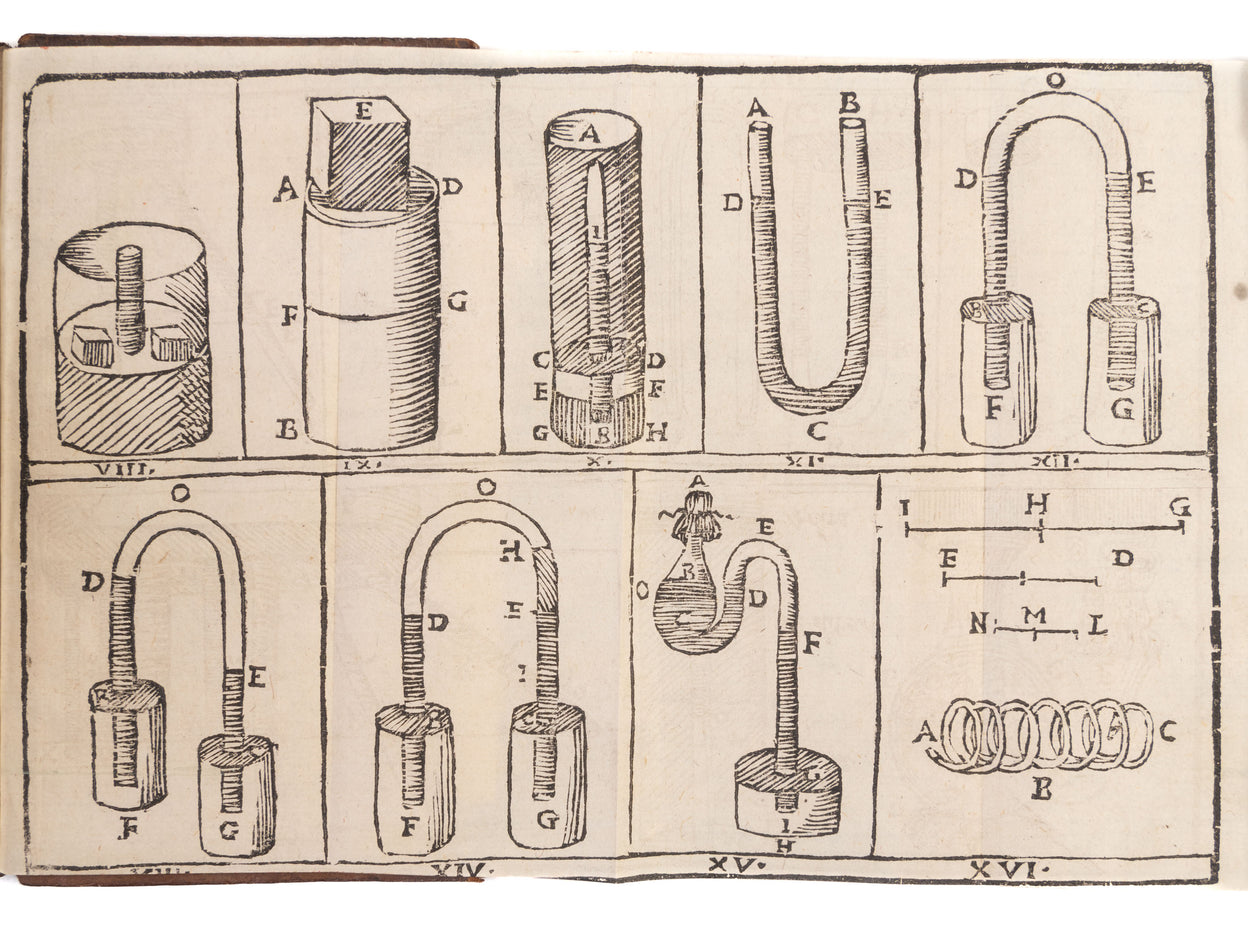 VIII.
E
A D
F G
B
IX.
A
I
C D
E F
G B H
X.
A B
D E
C
XI.
O
D E
B C
F G
XII.
O
D
E
F G
XIII.
O
H
D
E
F G
XIV.
A
E
B
O
D
C
F
G
I
H
XV.
I H G
E D
N M L
A C
B
XVI.